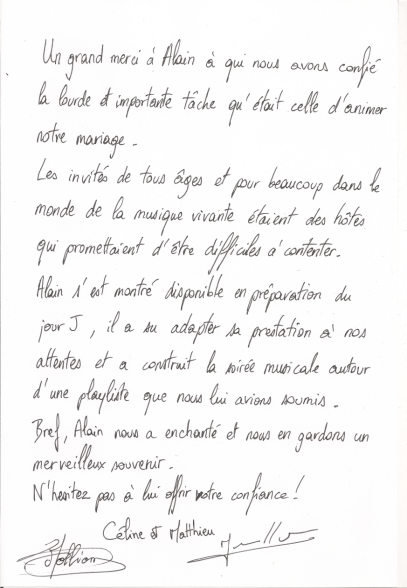 Un grand merci à Alain à qui nous avons confié
la lourde et importante tâche qu'était celle d'animer
notre mariage.
Les invités de tous âges et pour beaucoup dans le
monde de la musique vivante étaient des hôtes
qui promettaient d'être difficiles à contenter.
Alain s'est montré disponible en préparation du
jour J, il a su adapter sa prestation à nos
attentes et a construit la soirée musicale autour
d'une playliste que nous lui avions soumis.
Bref, Alain nous a enchanté et nous en gardons un
merveilleux souvenir.
N'hésitez pas à lui offrir votre confiance !
Céline et Matthieu